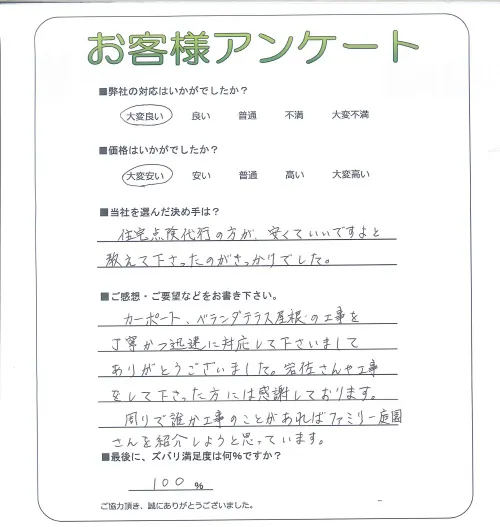 お客様アンケート
■弊社の対応はいかがでしたか?
大変良い 良い 普通 不満 大変不満
■価格はいかがでしたか?
大変安い 安い 普通 高い 大変高い
■当社を選んだ決め手は?
住宅点険代行の方が、安くていいですよと
教えて下さったのがきっかけでした。
■ご感想・ご要望などをお書き下さい。
カーポート、ベランダテラス屋根の工事を
丁寧かつ迅速に対応して下さいまして
ありがとうございました。岩佐さんや工事
をして下さった方には感謝しております。
周りで誰か工事のことがあればファミリー庭園
さんを紹介しようと思っています。
■最後に、ズバリ満足度は何%ですか?
100 %
ご協力頂き、誠にありがとうございました。